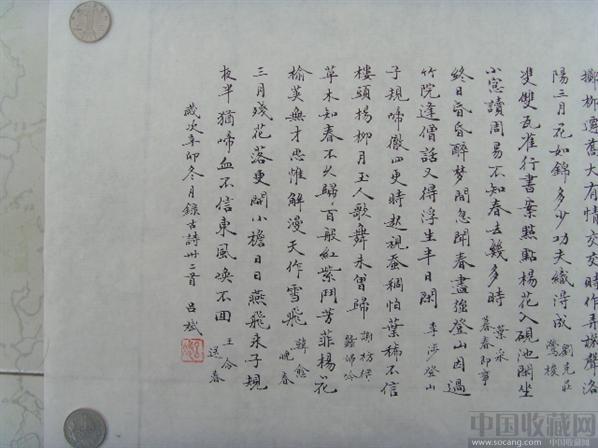 擲柳遷喬大有情交交時作弄機聲洛
陽三月花如錦多少功夫織得成
劉克莊
鶯梭
雙雙瓦雀行書案點點楊花入硯池閑坐
小窗讀周易不知春去幾多時
葉采
暮春即事
終日昏昏醉夢間忽聞春盡強登山因過
竹院逢僧話又得浮生半日閑
李涉登山
子規啼徹四更時起視蠶稠怕葉稀不信
樓頭楊柳月玉人歌舞未曾歸
謝枋得
蠶婦吟
草木知春不久歸百般紅紫鬥芳菲楊花
榆莢無才思惟解漫天作雪飛
韓愈
晚春
三月殘花落更開小檐日日燕飛來子規
夜半猶啼血不信東風喚不回
王令
送春
歲次辛卯冬月錄古詩卅二首 吕斌
中国收藏网
www.socang.com